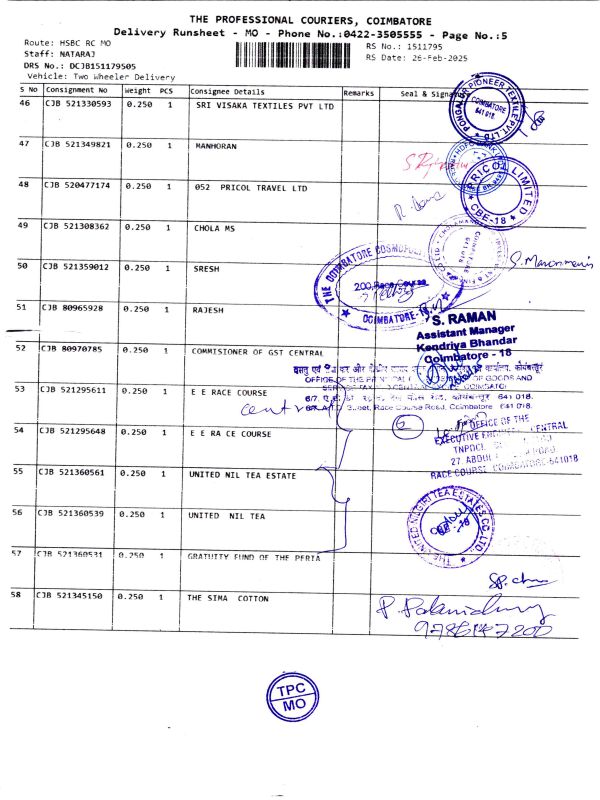 THE PROFESSIONAL COURIERS, COIMBATORE
Delivery Runsheet - MO - Phone No.:0422-3505555 - Page No.:5
Route: HSBC RC MO
RS No.: 1511795
Staff: NATARAJ
RS Date: 26-Feb-2025
DRS No.: DCJB151179505
Vehicle: Two Wheeler Delivery
S No Consignment No Weight PCS Consignee Details Remarks Seal & Signature
46 CJB 521330593 0.250 1 SRI VISAKA TEXTILES PVT LTD
47 CJB 521349821 0.250 1 MANHORAN
48 CJB 520477174 0.250 1 052 PRICOL TRAVEL LTD
49 CJB 521308362 0.250 1 CHOLA MS
50 CJB 521359012 0.250 1 SRESH
51 CJB 80965928 0.250 1 RAJESH
52 CJB 80970785 0.250 1 COMMISIONER OF GST CENTRAL
53 CJB 521295611 0.250 1 E E RACE COURSE
54 CJB 521295648 0.250 1 E E RA CE COURSE
55 CJB 521360561 0.250 1 UNITED NIL TEA ESTATE
56 CJB 521360539 0.250 1 UNITED NIL TEA
57 CJB 521360531 0.250 1 GRATUITY FUND OF THE PERIA
58 CJB 521345150 0.250 1 THE SIMA COTTON
PIONEER TEXTILE PVT. LTD.
COIMBATORE
641 018
PRICOL LIMITED
CBE-18
THE COIMBATORE COSMOPOLITAN
200, Race Course
COIMBATORE-18
S. RAMAN
Assistant Manager
Kendriya Bhandar
Coimbatore - 18
OFFICE OF THE GOODS AND
Street, Race Course Road, Coimbatore 641 018.
central
6
OFFICE OF THE
EXECUTIVE ENGINEER CENTRAL
27, ABDUL ROAD
RACE COURSE, COIMBATORE-641018
THE UNITED NILGIRI TEA ESTATES CO. LTD.
TPC
MO